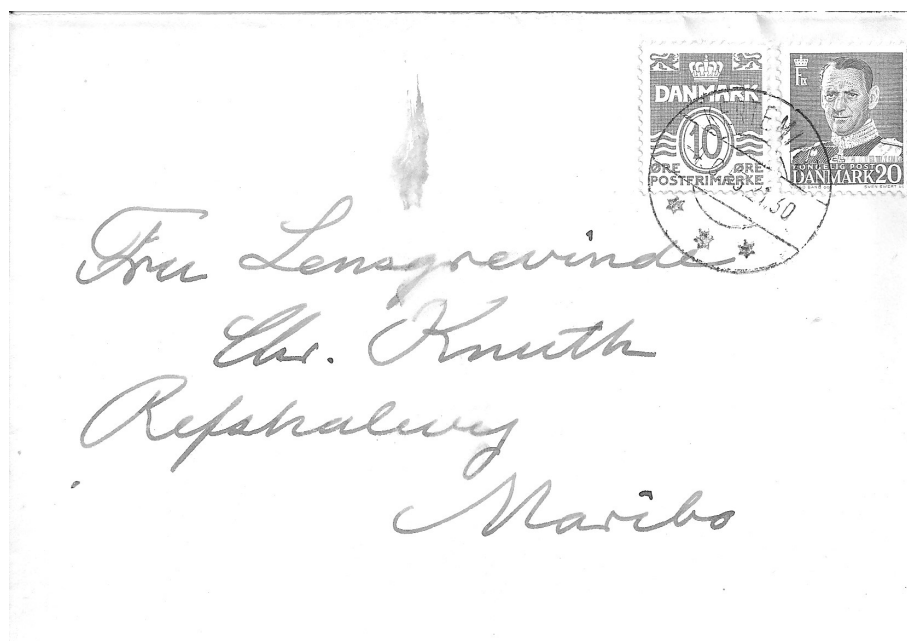 DANMARK
10
ØRE ØRE
POSTFRIMÆRKE
DANMARK 20
21.30
Fru Lensgrevinde
Chr. Knuth
Refshalevej
Maribo